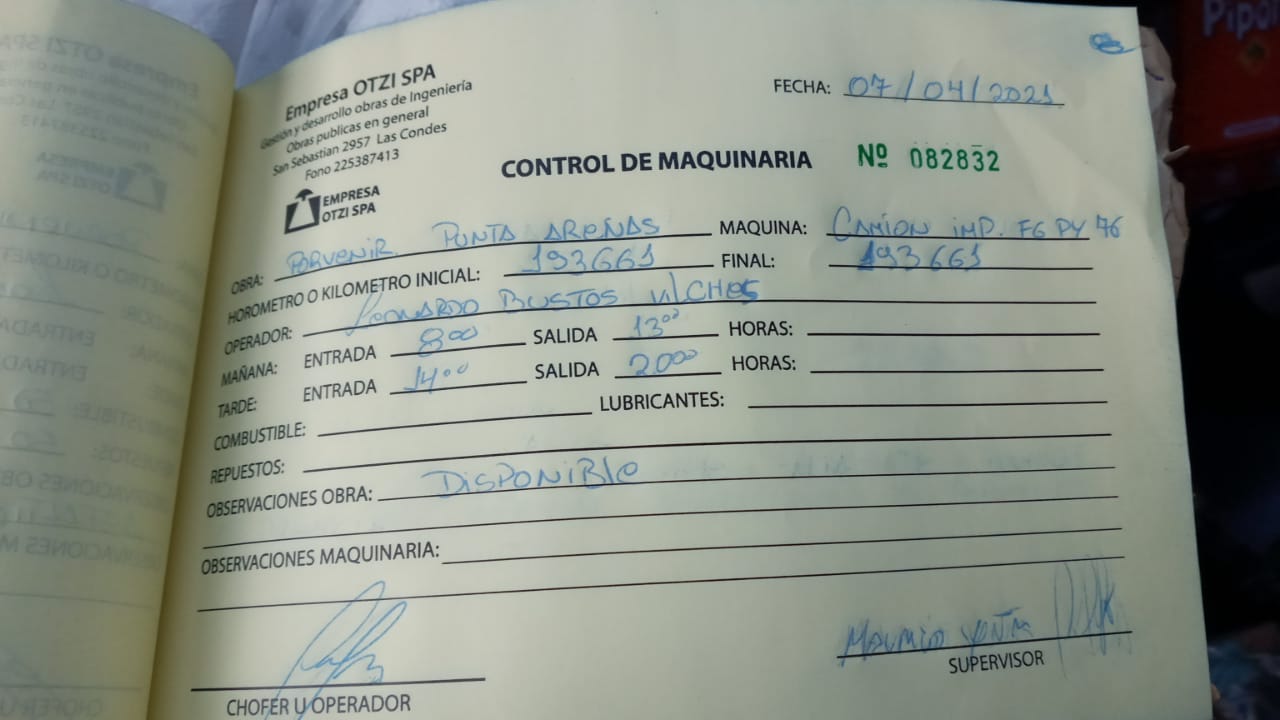 Empresa OTZI SPA
Gestión y desarrollo obras de Ingeniería
Obras publicas en general
San Sebastian 2957 Las Condes
Fono 225387413
EMPRESA
OTZI SPA
FECHA: 07/04/2021
CONTROL DE MAQUINARIA Nº 082832
OBRA: PORVENIR PUNTA AREÑAS MAQUINA: CAMION IMP. FG PY 76
HOROMETRO O KILOMETRO INICIAL: 193661 FINAL: 193661
OPERADOR: LEONARDO BUSTOS VILCHES
MAÑANA: ENTRADA 8:00 SALIDA 13:00 HORAS:
TARDE: ENTRADA 14:00 SALIDA 20:00 HORAS:
COMBUSTIBLE: LUBRICANTES:
REPUESTOS:
OBSERVACIONES OBRA: DISPONIBLE
OBSERVACIONES MAQUINARIA:
CHOFER U OPERADOR
SUPERVISOR
Pipo